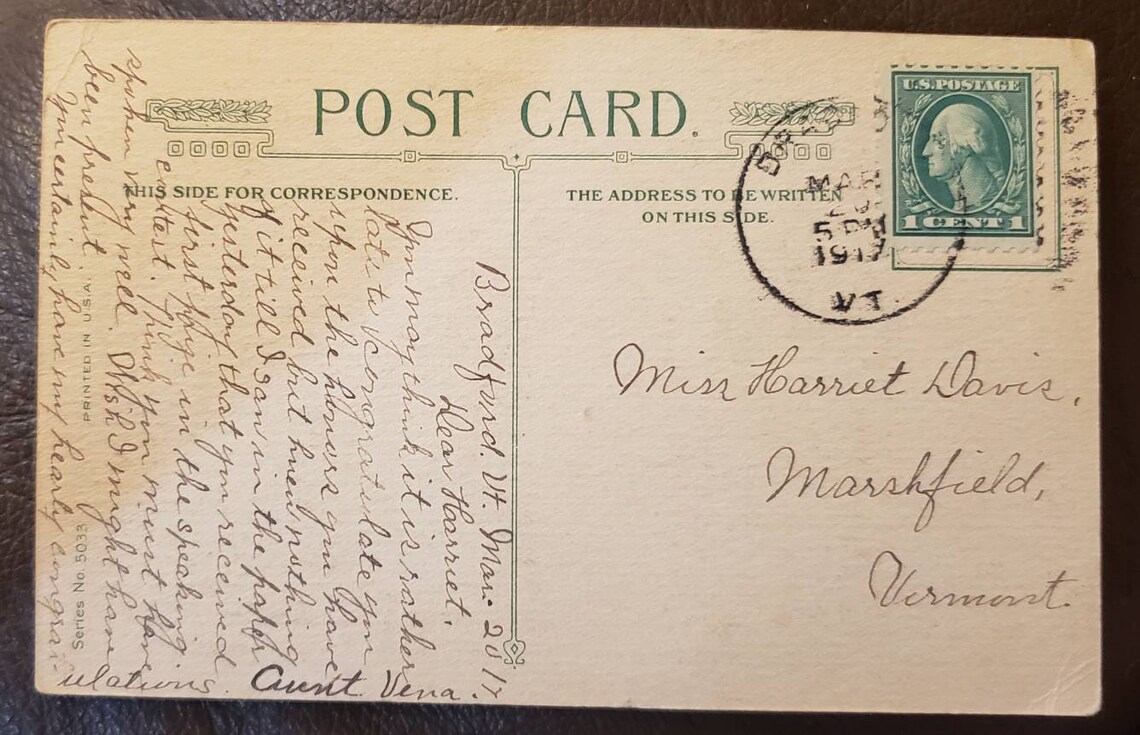 POST CARD.
THIS SIDE FOR CORRESPONDENCE.
THE ADDRESS TO BE WRITTEN
ON THIS SIDE.
U.S. POSTAGE
1 CENT 1
MAR
5 PM
1917
VT.
Miss Harriet Davis,
Marshfield,
Vermont.
Bradford. Vt. Mar. 20 17
Dear Harriet,
You may think it is rather
late to congratulate you
upon the honors you have
received but knew nothing
of it till I saw in the paper
yesterday that you received
first prize in the speaking
contest. Think you must have
spoken very well. Wish I might have
been present.
You certainly have my hearty congrat-
ulations. Aunt Vena.
PRINTED IN U.S.A.
Series No. 5033